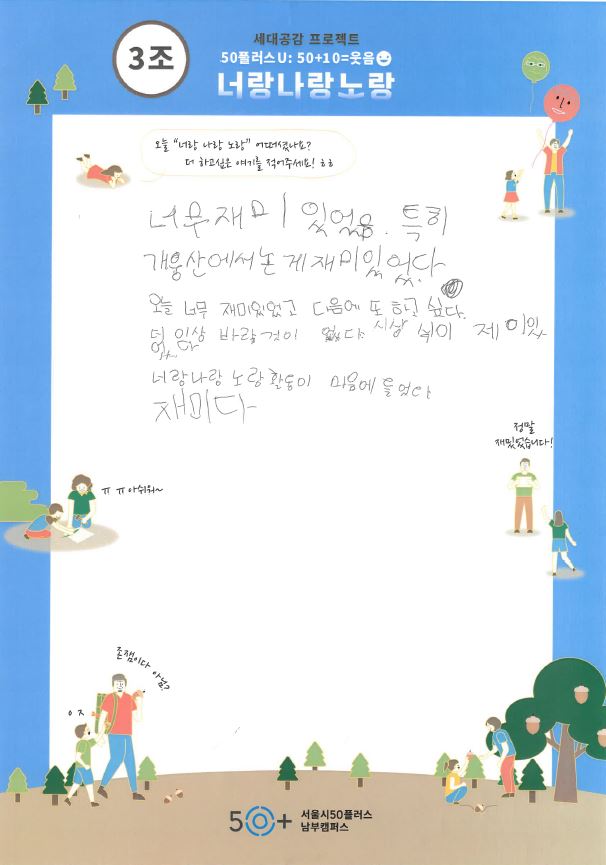 3조
세대공감 프로젝트
50플러스U: 50+10=웃음
너랑나랑노랑
오늘 "너랑 나랑 노랑" 어떠셨나요?
더 하고싶은 얘기를 적어주세요! ㅎㅎ
너무 재미 있었음. 특히
개웅산에서 논 게 재미있었다
오늘 너무 재미있었고 다음에 또 하고 싶다.
더 이상 바랄 것이 없다
너랑나랑 노랑 활동이 마음에 들었다
재미다
정말
재밌었습니다!
ㅠㅠ 아쉬워~
존잼이다 아님?
ㅇㅈ
50+ 서울시50플러스
남부캠퍼스